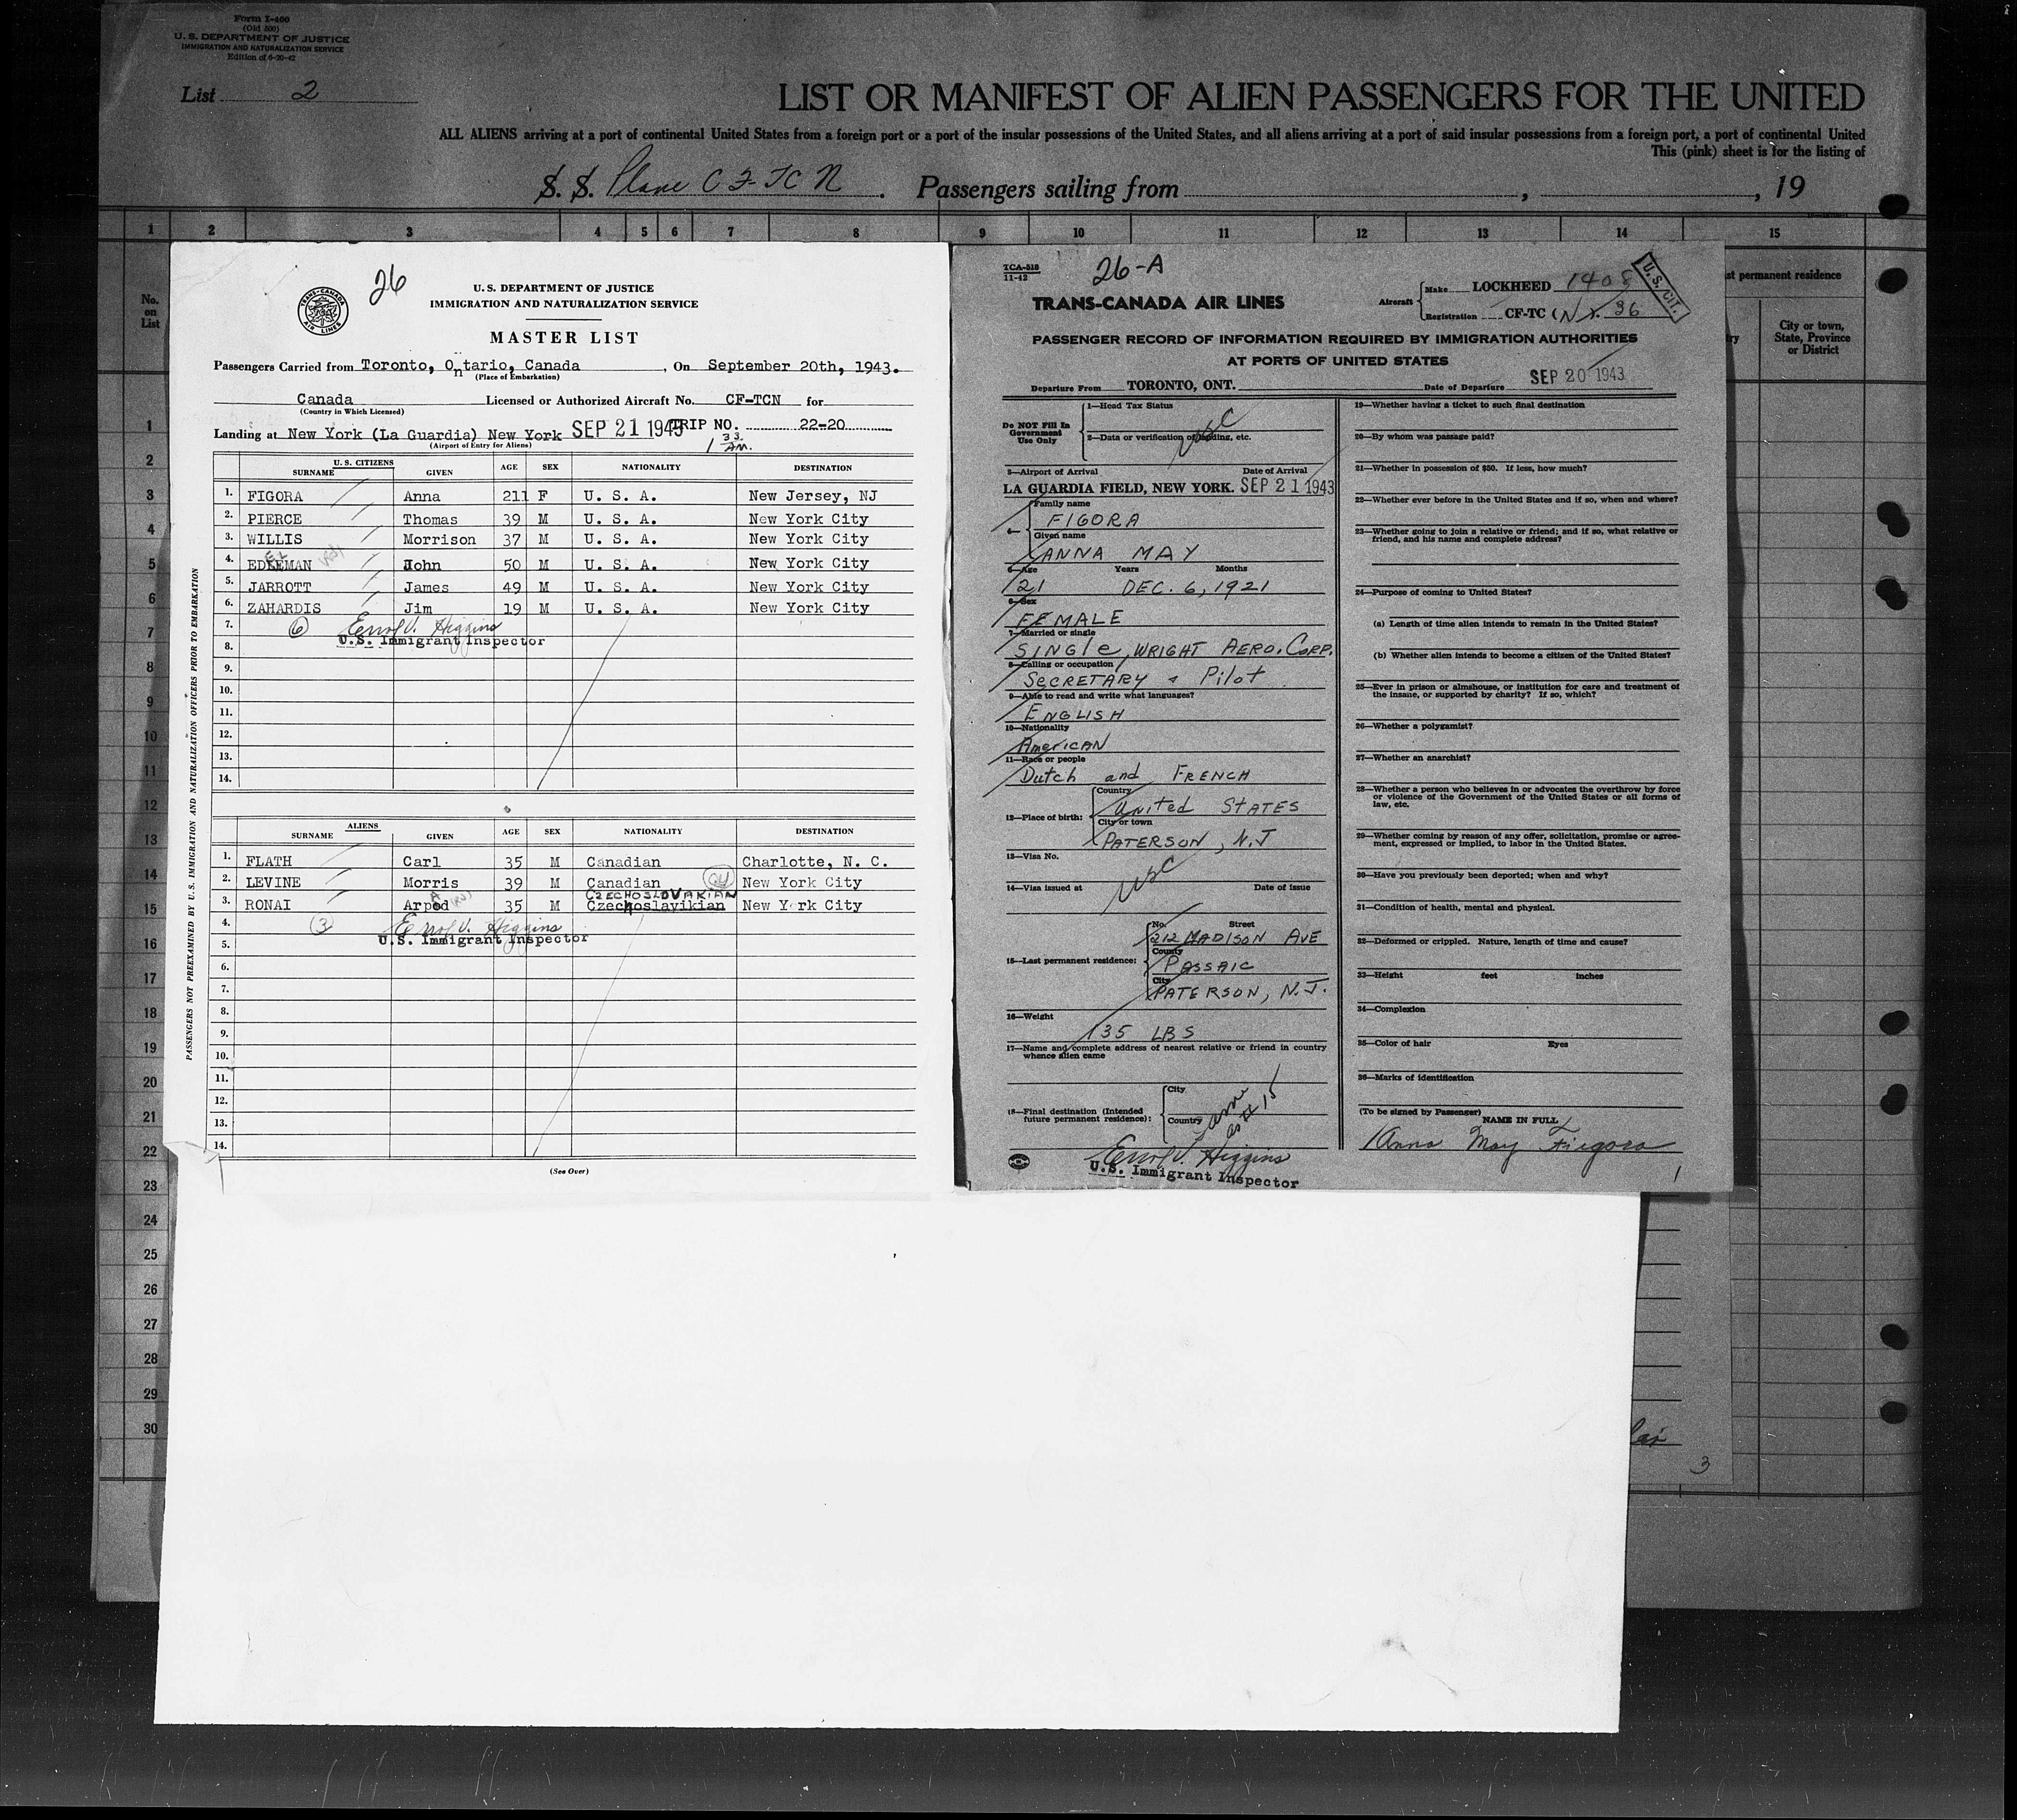 Form I-400
(Old 500)
U. S. DEPARTMENT OF JUSTICE
IMMIGRATION AND NATURALIZATION SERVICE
Edition of 6-20-42
List 2
LIST OR MANIFEST OF ALIEN PASSENGERS FOR THE UNITED
ALL ALIENS arriving at a port of continental United States from a foreign port or a port of the insular possessions of the United States, and all aliens arriving at a port of said insular possessions from a foreign port, a port of continental United
This (pink) sheet is for the listing of
S. S. Plane CF-TCN. Passengers sailing from , , 19
1 2 3 4 5 6 7 8 9 10 11 12 13 14 15
No. on List
st permanent residence
City or town, State, Province or District
1
2
3
4
5
6
7
8
9
10
11
12
13
14
15
16
17
18
19
20
21
22
23
24
25
26
27
28
29
30
3
TRANS-CANADA AIR LINES
26
U. S. DEPARTMENT OF JUSTICE
IMMIGRATION AND NATURALIZATION SERVICE
MASTER LIST
Passengers Carried from Toronto, Ontario, Canada, On September 20th, 1943.
(Place of Embarkation)
Canada Licensed or Authorized Aircraft No. CF-TCN for
(Country in Which Licensed)
Landing at New York (La Guardia) New York SEP 21 1943 TRIP NO. 22-20
(Airport of Entry for Aliens) 1 33 AM.
U. S. CITIZENS
SURNAME GIVEN AGE SEX NATIONALITY DESTINATION
1. FIGORA Anna 211 F U. S. A. New Jersey, NJ
2. PIERCE Thomas 39 M U. S. A. New York City
3. WILLIS Morrison 37 M U. S. A. New York City
4. EDLEMAN John 50 M U. S. A. New York City
5. JARROTT James 49 M U. S. A. New York City
6. ZAHARDIS Jim 19 M U. S. A. New York City
7. 6 Errol V. Higgins
U.S. Immigrant Inspector
8.
9.
10.
11.
12.
13.
14.
ALIENS
SURNAME GIVEN AGE SEX NATIONALITY DESTINATION
1. FLATH Carl 35 M Canadian Charlotte, N. C.
2. LEVINE Morris 39 M Canadian New York City
CZECHOSLOVAKIAN
3. RONAI Arpod 35 M Czechoslavikian New York City
4. 3 Errol V. Higgins
U.S. Immigrant Inspector
5.
6.
7.
8.
9.
10.
11.
12.
13.
14.
(See Over)
PASSENGERS NOT PREEXAMINED BY U. S. IMMIGRATION AND NATURALIZATION OFFICERS PRIOR TO EMBARKATION
TCA-518
11-42
26-A
TRANS-CANADA AIR LINES
Aircraft Make LOCKHEED 1408
Registration CF-TC (N) 36
U. S. CIT.
PASSENGER RECORD OF INFORMATION REQUIRED BY IMMIGRATION AUTHORITIES
AT PORTS OF UNITED STATES
Departure From TORONTO, ONT. Date of Departure SEP 20 1943
Do NOT Fill In
Government Use Only
1—Head Tax Status
USC
2—Data or verification of landing, etc.
3—Airport of Arrival Date of Arrival
LA GUARDIA FIELD, NEW YORK. SEP 21 1943
4— Family name
FIGORA
Given name
ANNA MAY
5—Age Years Months
21 DEC. 6, 1921
6—Sex
FEMALE
7—Married or single
SINGle, WRIGHT AERO. CORP.
8—Calling or occupation
SecRETARY & Pilot
9—Able to read and write what languages?
ENGLISH
10—Nationality
AmerICAN
11—Race or people
Dutch and FRENCH
12—Place of birth: Country
United STATES
City or town
PATERSON, N.J
13—Visa No.
USC
14—Visa issued at Date of issue
15—Last permanent residence: No. Street
212 MADISON AVE
County
PASSAIC
City
PATERSON, N.J.
16—Weight
135 LBS
17—Name and complete address of nearest relative or friend in country whence alien came
18—Final destination (Intended future permanent residence): City
Country
same as # 15
Errol V. Higgins
U.S. Immigrant Inspector
19—Whether having a ticket to such final destination
20—By whom was passage paid?
21—Whether in possession of $50. If less, how much?
22—Whether ever before in the United States and if so, when and where?
23—Whether going to join a relative or friend; and if so, what relative or friend, and his name and complete address?
24—Purpose of coming to United States?
(a) Length of time alien intends to remain in the United States?
(b) Whether alien intends to become a citizen of the United States?
25—Ever in prison or almshouse, or institution for care and treatment of the insane, or supported by charity? If so, which?
26—Whether a polygamist?
27—Whether an anarchist?
28—Whether a person who believes in or advocates the overthrow by force or violence of the Government of the United States or all forms of law, etc.
29—Whether coming by reason of any offer, solicitation, promise or agreement, expressed or implied, to labor in the United States.
30—Have you previously been deported; when and why?
31—Condition of health, mental and physical.
32—Deformed or crippled. Nature, length of time and cause?
33—Height feet inches
34—Complexion
35—Color of hair Eyes
36—Marks of identification
(To be signed by Passenger)
NAME IN FULL
Anna May Figora
1